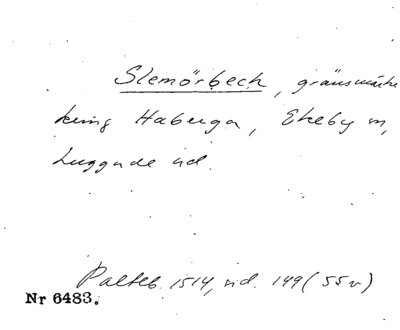 Slemörbech, gränsmärke
kring Haberga, Ekeby m,
Luggude hd.
Palteb. 1514, sid. 149 (55v)
Nr 6483.